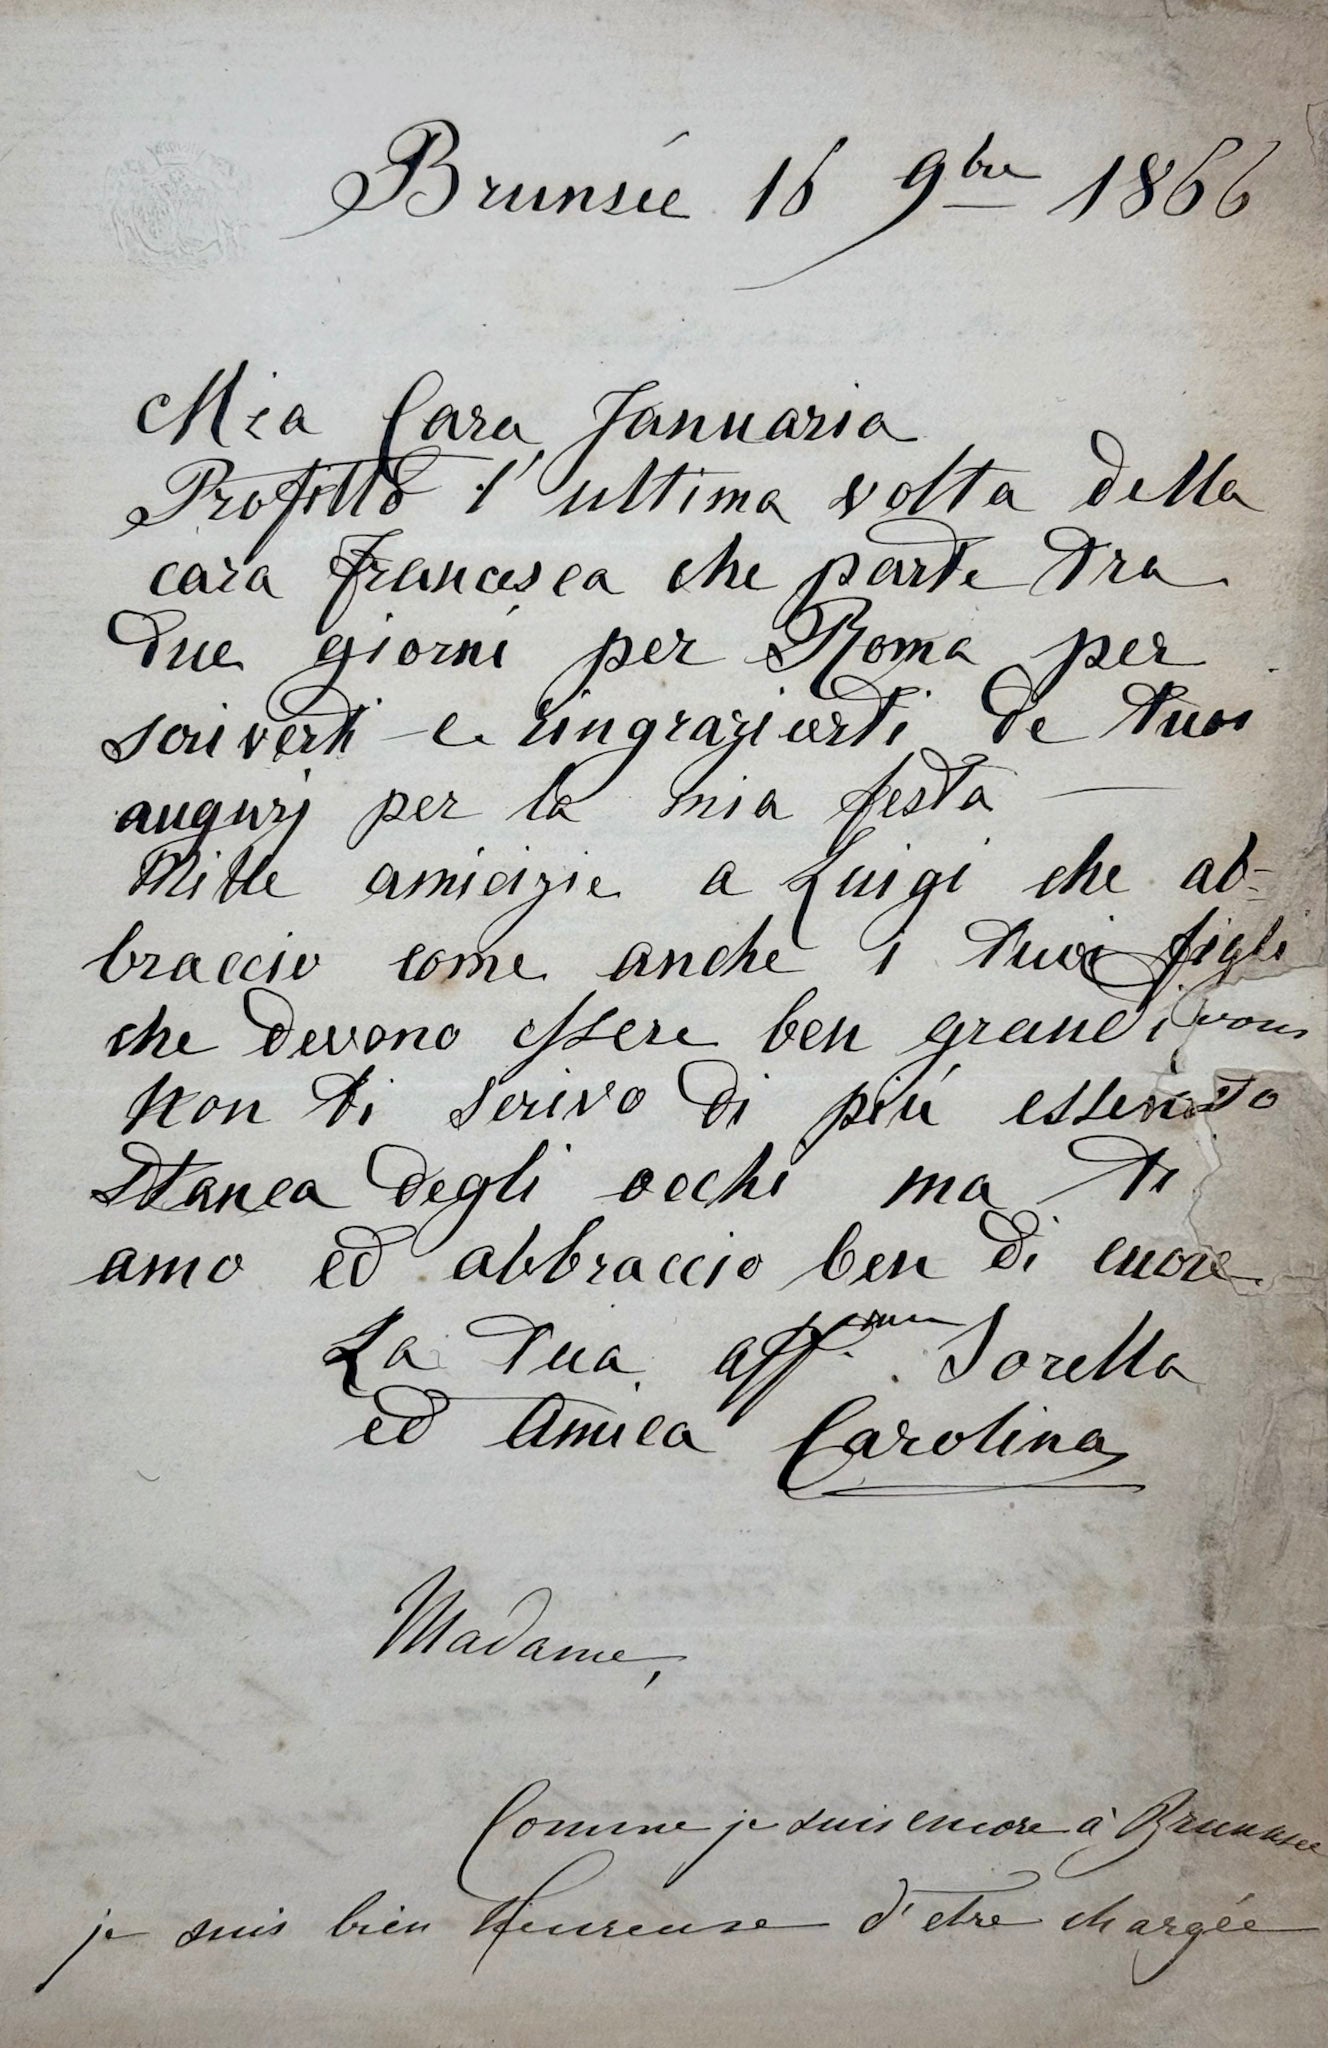 Brunsée 16 9bre 1866
Mia Cara Januaria
Profitto l'ultima volta della
cara Francesca che parte tra
due giorni per Roma per
scriverti e ringraziarti de tuoi
augurj per la mia festa —
Mille amicizie a Luigi che ab=
braccio come anche i tuoi figli
che devono essere ben grandi
Non ti scrivo di più essendo
stanca degli occhi ma ti
amo ed abbraccio ben di cuore
La tua aff.ma Sorella
ed Amica Carolina
Madame,
Comme je suis encore à Brunnsee
je suis bien heureuse d'etre chargée